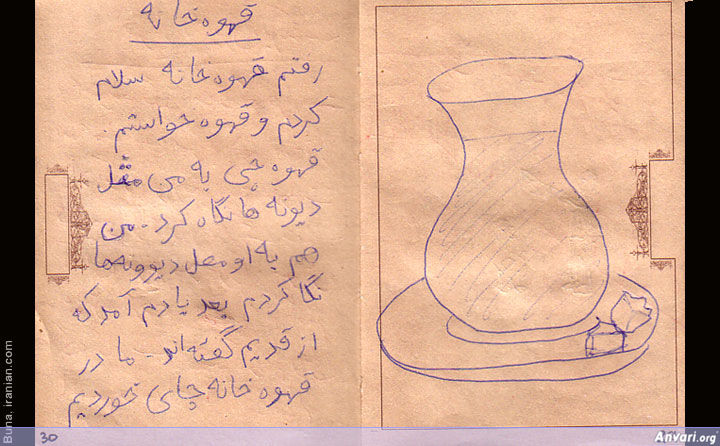 قهوه خانه
رفتم قهوه خانه سلام
کردم و قهوه خواستم.
قهوه چی به من مثل
دیونه ها نگاه کرد. من
هم به او مثل دیوونه ها
نگا کردم بعد یادم آمد که
از قدیم گفته اند. ما در
قهوه خانه چای خوردیم
30
Buna. iranian.com
Anvari.org